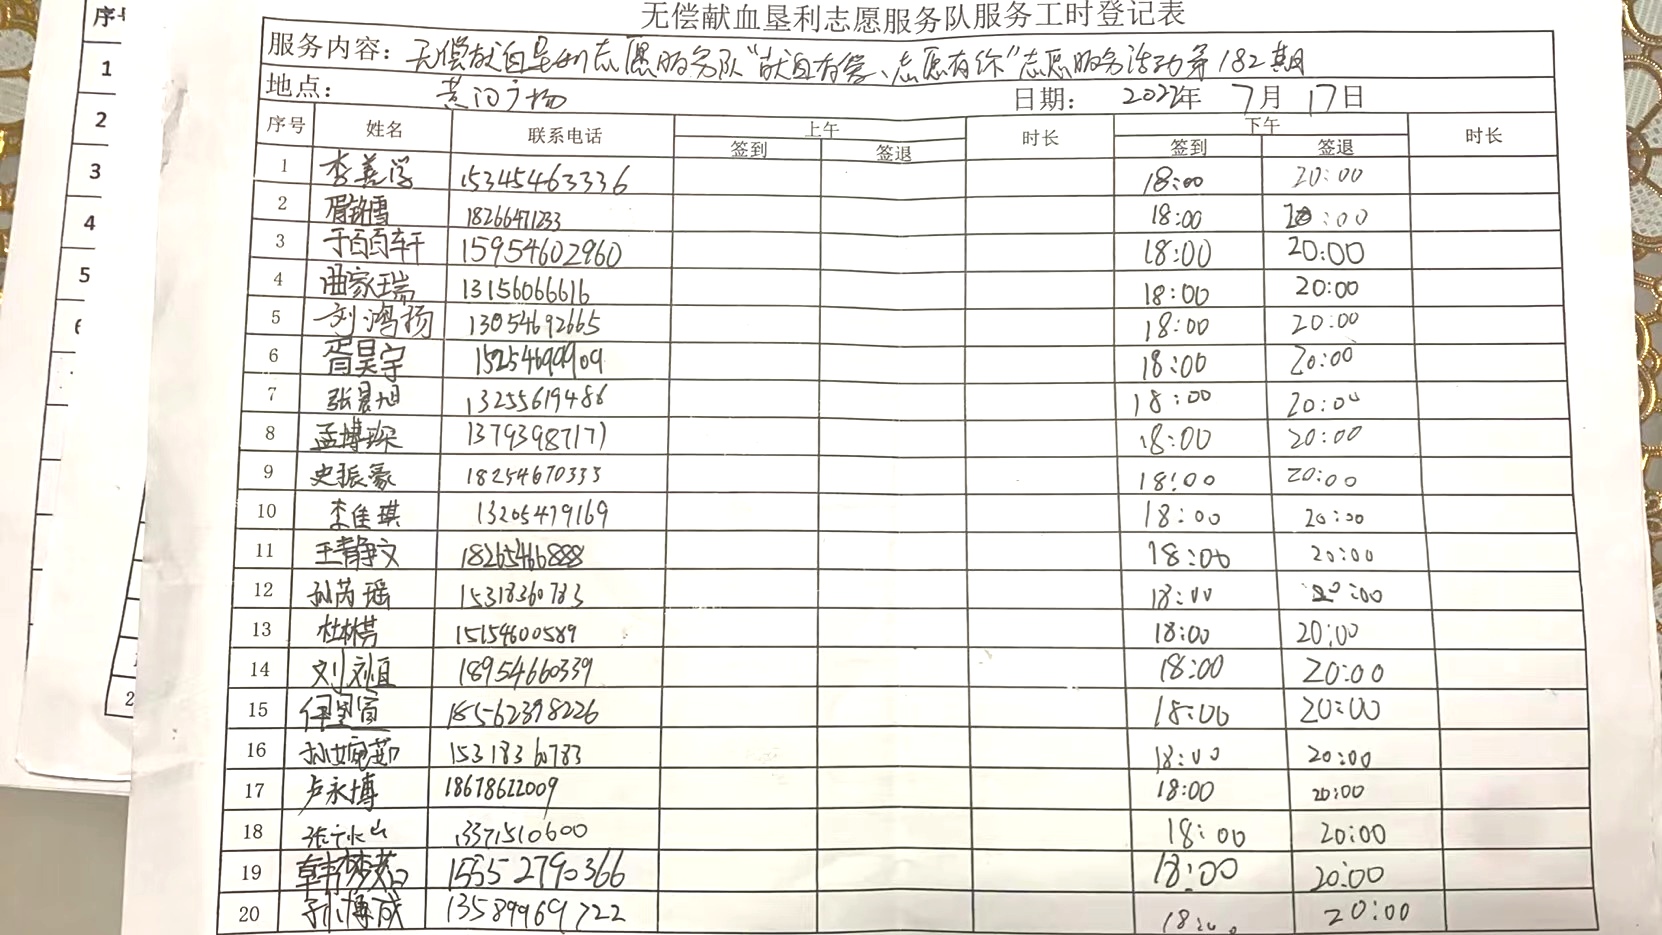 序号
1
2
3
4
5
6
2
无偿献血垦利志愿服务队服务工时登记表
服务内容：无偿献血垦利志愿服务队“献血有爱、志愿有你”志愿服务活动第182期
地点： 黄河广场 日期： 2022年 7月 17日
序号 姓名 联系电话 上午 时长 下午 时长
签到 签退 签到 签退
1 李善学 15345463336 18:00 20:00
2 18266471233 18:00 20:00
3 于百轩 15954602960 18:00 20:00
4 曲家瑞 13156066616 18:00 20:00
5 刘鸿扬 13054692665 18:00 20:00
6 胥昊宇 18:00 20:00
7 张晨旭 13255619486 18:00 20:00
8 孟博琛 13793987171 18:00 20:00
9 史振豪 18254670333 18:00 20:00
10 李佳琪 13205479169 18:00 20:00
11 王静文 18265466888 18:00 20:00
12 孙芮瑶 15318360783 18:00 20:00
13 15154600589 18:00 20:00
14 18954660339 18:00 20:00
15 18562398226 18:00 20:00
16 孙婉茹 15318360783 18:00 20:00
17 卢永博 18678622009 18:00 20:00
18 13371510600 18:00 20:00
19 15552790366 18:00 20:00
20 孙博成 13589969722 20:00